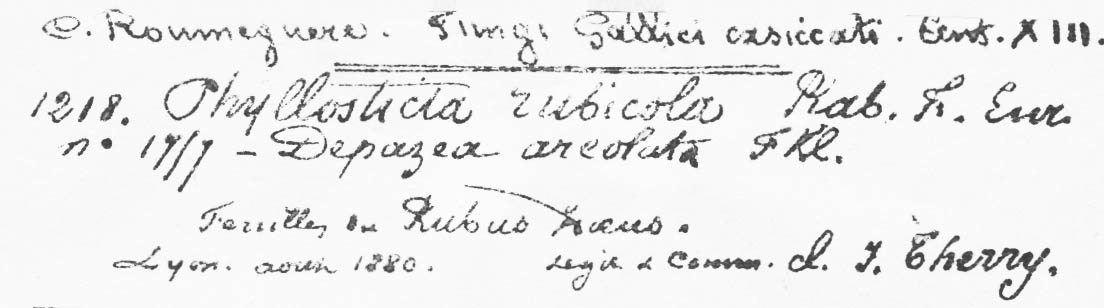 C. Roumeguere. Fungi Gallici exsiccati. Cent. XIII.
1218. Phyllosticta rubicola Rab. F. Eur.
n° 1717 - Depazea areolata FKl.
Feuilles du Rubus Idaeus.
Lyon. août 1880. Legit & Comm. cl. J. Therry.